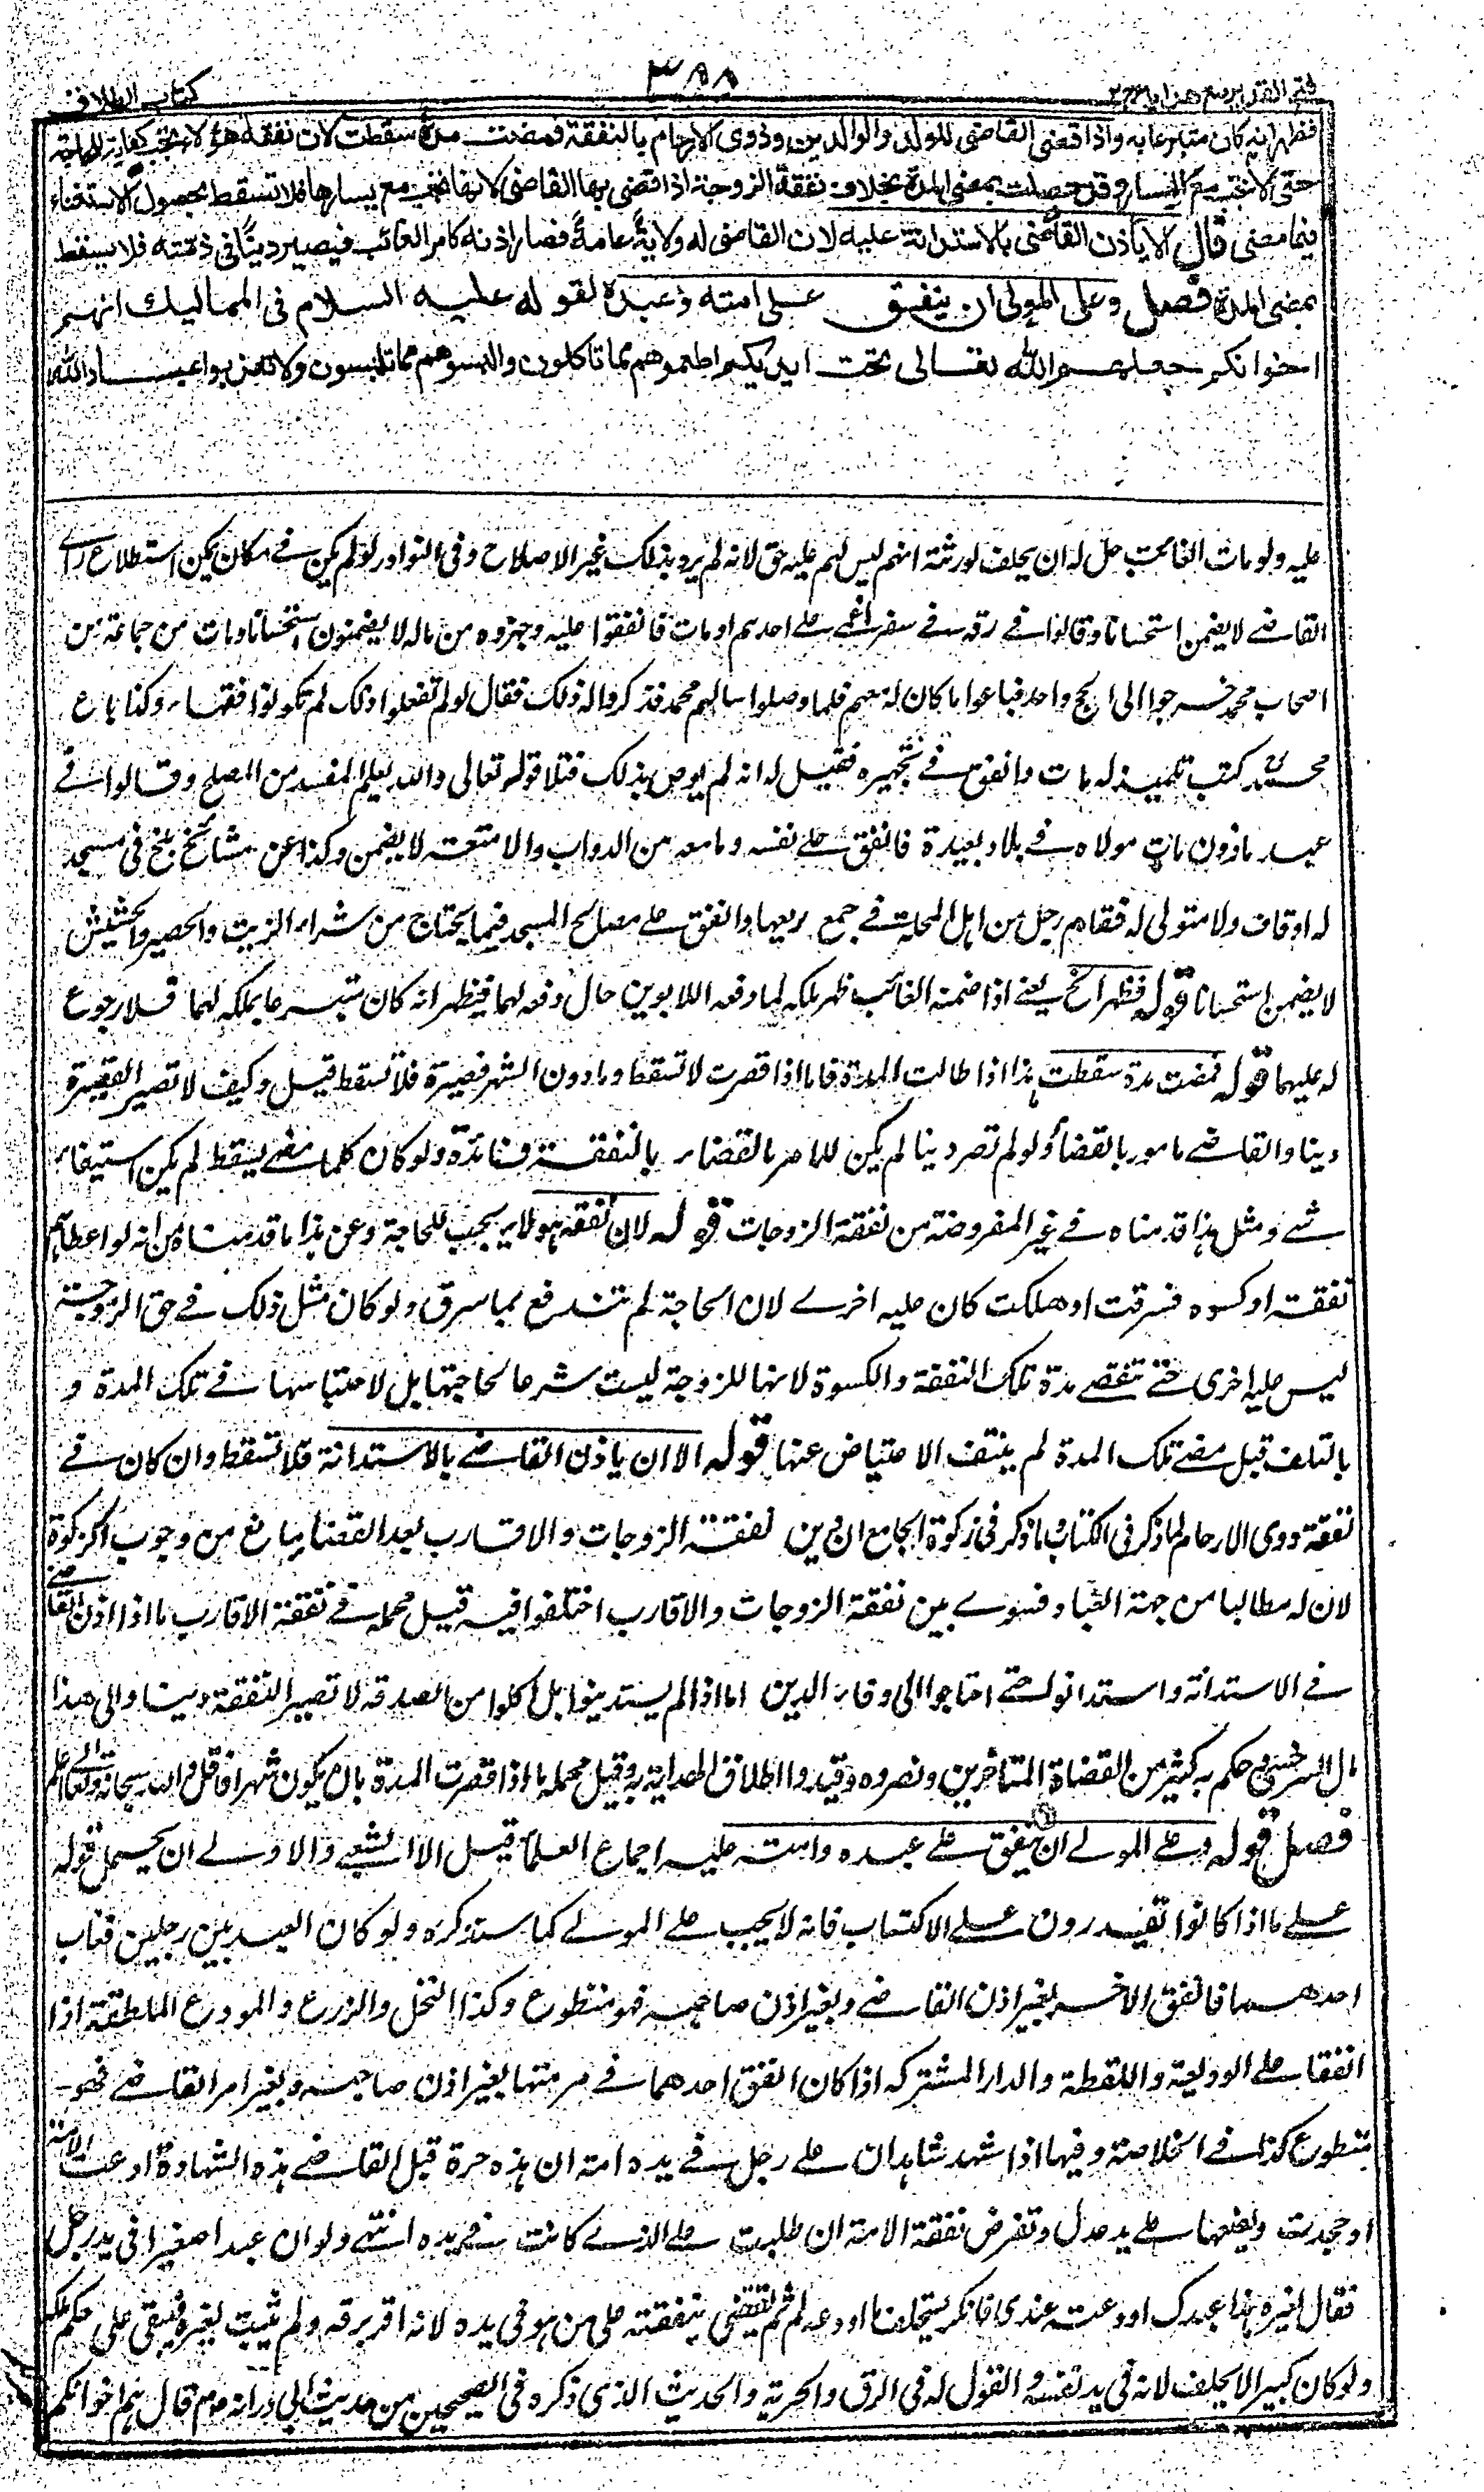 فتح القدير مع هداية ج ٢
٣٨٨
كتاب الطلاق
فظهر انه كان متبرعا به واذا قضى القاضي للولد والوالدين وذوي الارحام بالنفقة فمضت مدة سقطت لان نفقة هؤلاء تجب كفاية للحاجة
حتى لا تجب مع اليسار وقد حصلت بمضي المدة بخلاف نفقة الزوجة اذا قضى بها القاضي لانها تجب مع يسارها فلا تسقط بحصول الاستغناء
فيما مضى قال الا ان ياذن القاضي بالاستدانة عليه لان القاضي له ولاية عامة فصار اذنه كامر الغائب فيصير دينا في ذمته فلا يسقط
بمضي المدة فصل وعلى المولى ان ينفق على امته وعبده لقوله عليه السلام في المماليك انهم
اخوانكم جعلهم الله تعالى تحت ايديكم اطعموهم مما تاكلون والبسوهم مما تلبسون ولا تعذبوا عباد الله
عليه ولو مات الغائب حل له ان يحلف لورثته انهم ليس لهم عليه حق لانه لم يرد بذلك غير الاصلاح وفي النوادر لو لم يكن في مكان يمكن استطلاع راي
القاضي لا يضمن استحسانا وقالوا في رفقة في سفر اغمي على احدهم او مات فانفقوا عليه وجهزوه من ماله لا يضمنون استحسانا ومات من جماعة من
اصحاب محمد خرجوا الى الحج واحد فباعوا ما كان له معهم فلما وصلوا سالهم محمد فذكروا له ذلك فقال لو لم تفعلوا ذلك لم تكونوا فقهاء وكذا باع
محمد كتب تلميذ له مات وانفق في تجهيزه فقيل له انه لم يوص بذلك فتلا قوله تعالى والله يعلم المفسد من المصلح وقالوا في
عبد ماذون مات مولاه في بلاد بعيدة فانفق على نفسه وما معه من الدواب والامتعة لا يضمن وكذا عن مشائخ بلخ في مسجد
له اوقاف ولا متولى له فقام رجل من اهل المحلة في جمع ريعها وانفق على مصالح المسجد فيما يحتاج من شراء الزيت والحصير والحشيش
لا يضمن استحسانا قوله فظهر الخ يعني اذا ضمنه الغائب ظهر ملكه لما دفعه للابوين حال دفعه لهما فيظهر انه كان متبرعا بملكه لهما فلا رجوع
له عليهما قوله فمضت مدة سقطت هذا اذا طالت المدة فاما اذا قصرت لا تسقط وما دون الشهر قصيرة فلا تسقط قيل وكيف لا تصير القصيرة
دينا والقاضي مامور بالقضاء ولو لم تصر دينا لم يكن للامر بالقضاء بالنفقة فائدة ولو كان كلما مضى يسقط لم يكن استيفاء
شئ ومثل هذا قدمناه في غير المفروضة من نفقة الزوجات قوله لان نفقة هؤلاء يجب للحاجة وعن هذا ما قدمناه من انه لو اعطاهم
نفقة او كسوة فسرقت او هلكت كان عليه اخرى لان الحاجة لم تندفع بما سرق ولو كان مثل ذلك في حق الزوجة
ليس عليه اخرى حتى تنقضي مدة تلك النفقة والكسوة لانها للزوجة ليست شرعا لحاجتها بل لاحتباسها في تلك المدة و
بالتلف قبل مضي تلك المدة لم ينتف الاعتياض عنها قوله الا ان ياذن القاضي بالاستدانة فلا تسقط وان كان في
نفقة ذوي الارحام لما ذكر في الكتاب وما ذكر في زكوة الجامع ان دين نفقة الزوجات والاقارب بعد القضاء مانع من وجوب الزكوة
لان له مطالبا من جهة العباد فسوى بين نفقة الزوجات والاقارب اختلفوا فيه قيل محمله في نفقة الاقارب ما اذا اذن القاضي
في الاستدانة واستدانوا حتى احتاجوا الى وفاء الدين اما اذا لم يستدينوا بل اكلوا من الصدقة لا تصير النفقة دينا والى هذا
مال السرخسي وحكم به كثير من القضاة المتاخرين ونصروه وقيدوا اطلاق الهداية به وقيل محمله ما اذا قصرت المدة بان يكون شهرا فاقل والله سبحانه وتعالى اعلم
فصل قوله وعلى المولى ان ينفق على عبده وامته عليه اجماع العلماء قيل الا الشعبي والاولى ان يحمل قوله
على ما اذا كانوا يقدرون على الاكتساب فانه لا يجب على المولى كما سنذكره ولو كان العبد بين رجلين فغاب
احدهما فانفق الاخر بغير اذن القاضي وبغير اذن صاحبه فهو متطوع وكذا النخل والزرع والمودع الملتقطة اذا
انفقا على الوديعة واللقطة والدار المشتركة اذا كان انفق احدهما في مرمتها بغير اذن صاحبه وبغير امر القاضي فهو
متطوع كذا في الخلاصة وفيها اذا شهد شاهدان على رجل في يده امة ان هذه حرة قبل القاضي هذه الشهادة ادعت الامة
او جحدت ويضعها على يد عدل وتفرض نفقة الامة ان طلبت على الذي كانت في يده انتهى ولو ان عبدا صغيرا في يد رجل
فقال لغيره هذا عبدك اودعته عندي فانكر يستحلف ما اودعه لم ثم يقضى بنفقته على من هو في يده لانه اقر برقه ولم يثبت لغيره فيبقى على حكم ملكه
ولو كان كبيرا لا يحلف لانه في يد نفسه والقول له في الرق والحرية والحديث الذي ذكره في الصحيحين من حديث ابي ذر انه عم قال هم اخوانكم